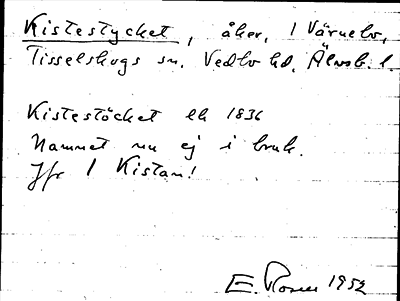 Kistestycket, åker, 1 Värnebo,
Tisselskogs sn. Vedbo hd. Älvsb. l.
Kistestöcket lk 1836
Namnet nu ej i bruk.
Jfr 1 Kistan!
E. Rosell 1952